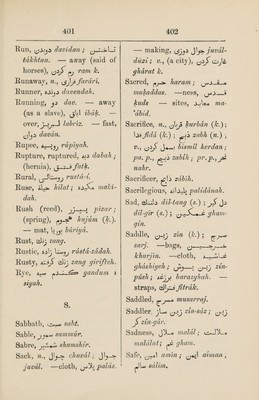 401
Run, دویدن davidan ; تاختن
tákhtan. — away (said of
horses), رم کردن ram k.
Runaway, n., فراری farárí.
Runner, دونده davandah.
Running, دو dav. — away
(as a slave), اباق ibáḳ. —
over, لبریز labríz. — fast,
دوان daván.
Rupee, روپیه rúpíyah.
Rupture, ruptured, دبه dabah ;
(hernia), فتق fatḳ.
Rural, روستائی rustá-í.
Ruse, حیله hílat ; مکیده makí-
dah.
Rush (reed), پیزر pízar ;
(spring), هجوم hujúm (ḳ.).
— mat, بوریا búriyá.
Rust, زنگ zang.
Rustic, روستازاده rústá-zádah.
Rusty, زنگ گرفتن zang girifteh.
Rye, گندم سیاه gandum i
siyah.
S.
Sabbath, سبت sabt.
Sable, سمور sammúr.
Sabre, شمشیر shamshír.
Sack, n., جوال chuvál ; جوال
juvál. —cloth, پلاس palás.
402
— making, جوال دوزی juvál-
dúzí ; v., (a city), غارت کردن
ghárat k.
Sacred, حرم haram ; مقدس
muḳaddas. —ness, قدس
ḳuds — sites, معابد ma-
'ábid.
Sacrifice, n., قربان ḳurbán (k.) ;
فدا fidá (k.) ; ذبح zabh (n.) ;
v., بسمل کردن bismil kerdan ;
pa. p., ذبیح zabíh ; pr. p., نحر
nahr.
Sacrificer, ذابح zábih.
Sacrilegious, پالیدانه palídánah.
Sad, دلتنگ dil-tang (s.) ; دل گیر
dil-gír (s.) ; غمگین gham-
gín.
Saddle, زین zín (k.) ; سرج
sarj. —bags, خورجین
khurjín. —cloth, غاشیه
gháshiyeh ; زین پوش zín-
púsh ; برذغه barazghah. —
straps, فتراک fitrák.
Saddled, مسرج musarraj.
Saddler, زین ساز zín-sáz ; زین گر
zín-gár.
Sadness, ملال malál ; ملالت
malálat ; غم gham.
Safe, امین amín ; ایمن aiman ,
سالم sálim.